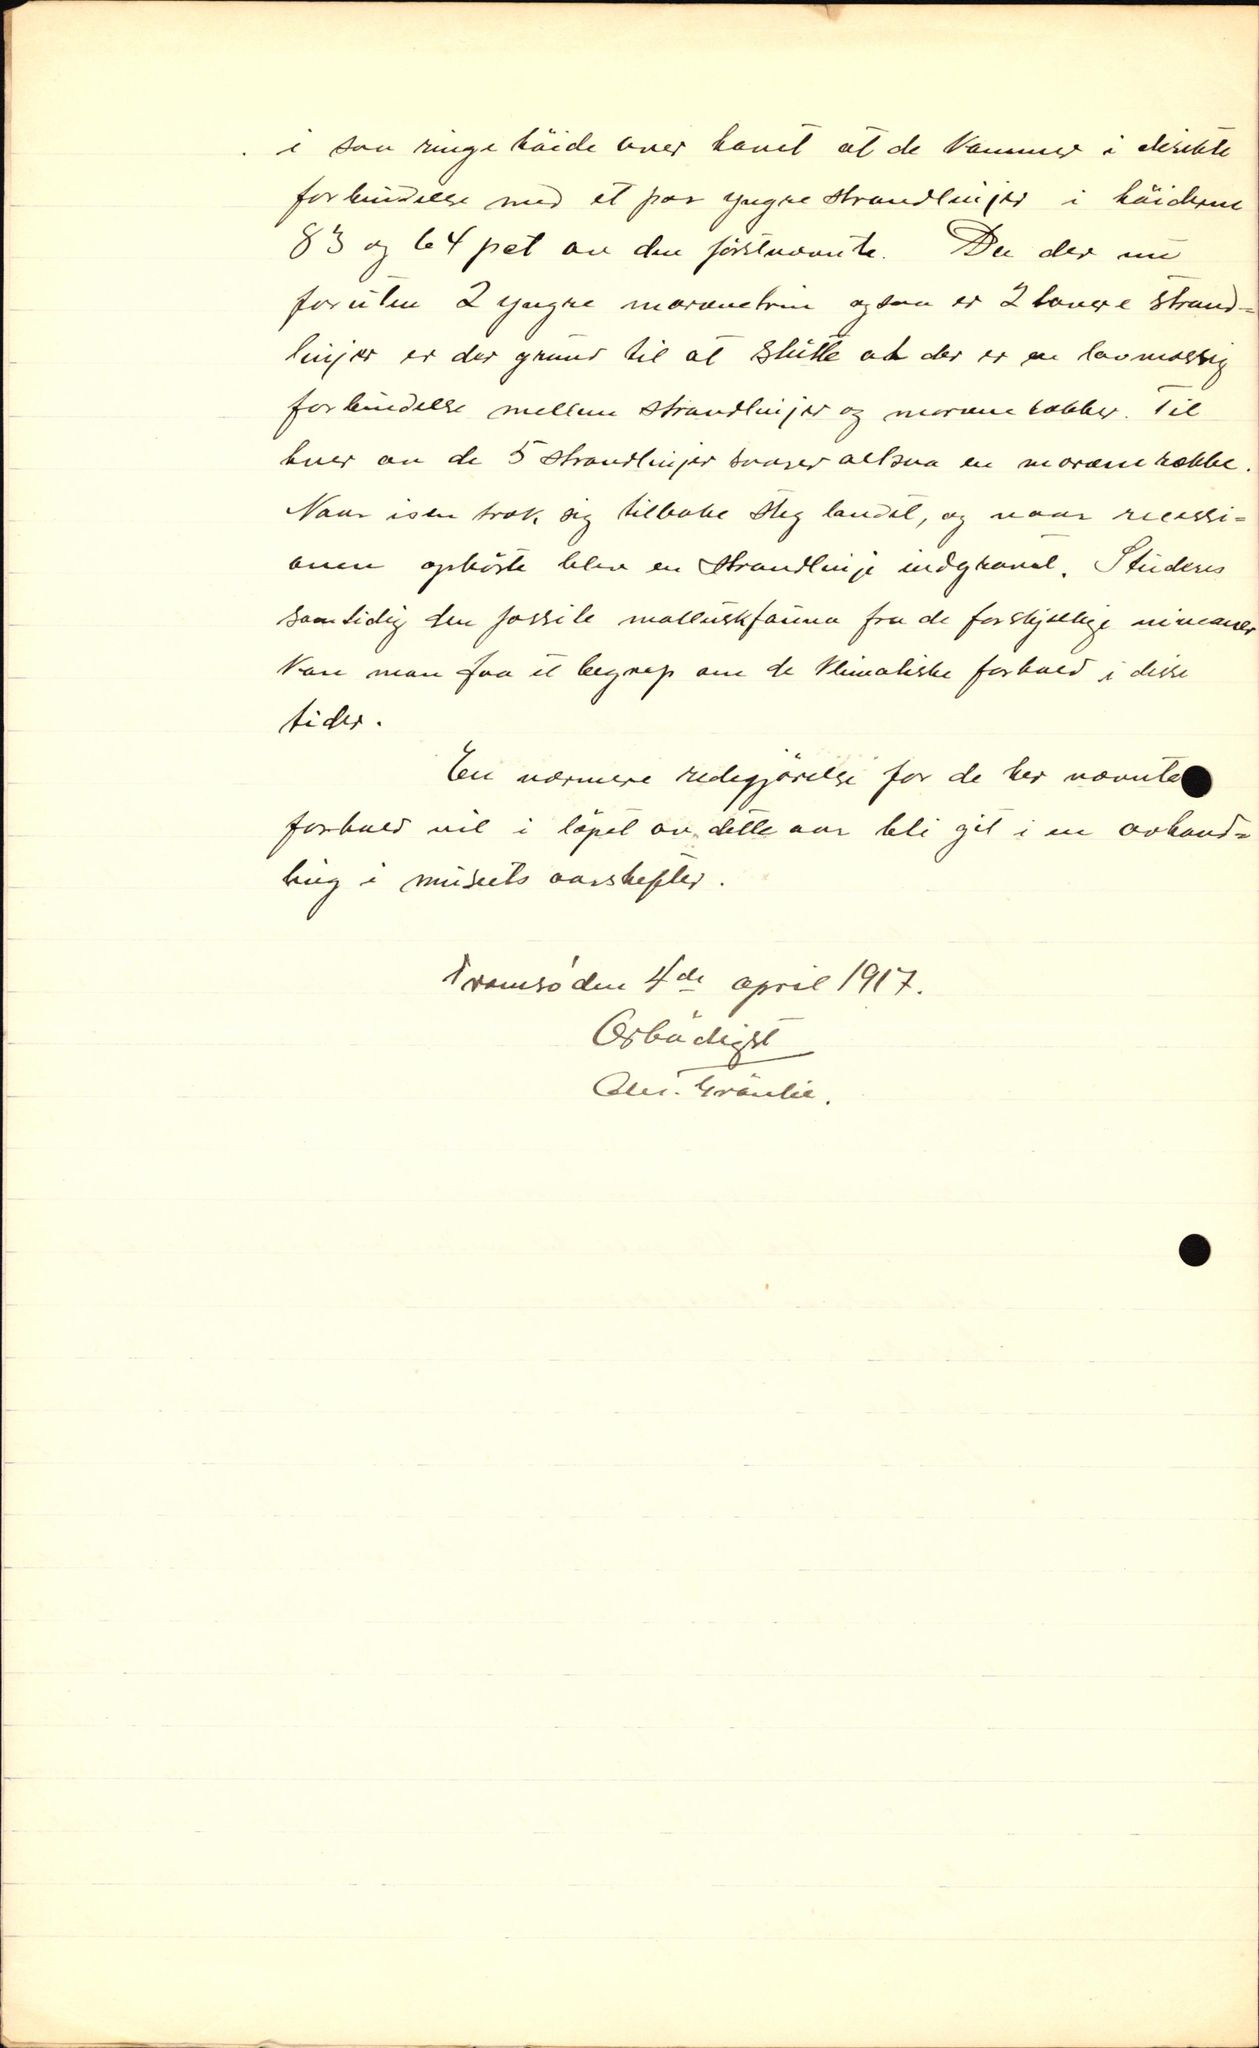 i saa ringe höide over havet at de kommer i direkte
forbindelse med et par yngre strandlinjer i höiderne
83 og 64 pct av den förstnævnte. Da der nu
foruten 2 yngre morænetrin ogsaa er 2 lavere strand=
linjer er der grund til at slutte at der er en lovmæssig
forbindelse mellem strandlinjer og morænerækker. Til
hver av de 5 strandlinjer svarer altsaa en morænerække.
Naar isen trak sig tilbake steg landet, og naar recessi=
onen ophörte blev en strandlinje indgravet. Studeres
samtidig den fossile molluskfauna fra de forskjellige niveauer
kan man faa et begrep om de klimatiske forhold i disse
tider.
En nærmere redegjörelse for de her nævnte
forhold vil i löpet av dette aar bli git i en avhand=
ling i museets aarshefter.
Tromsö den 4de april 1917.
Ærbödigst
Ole T. Grönlie.